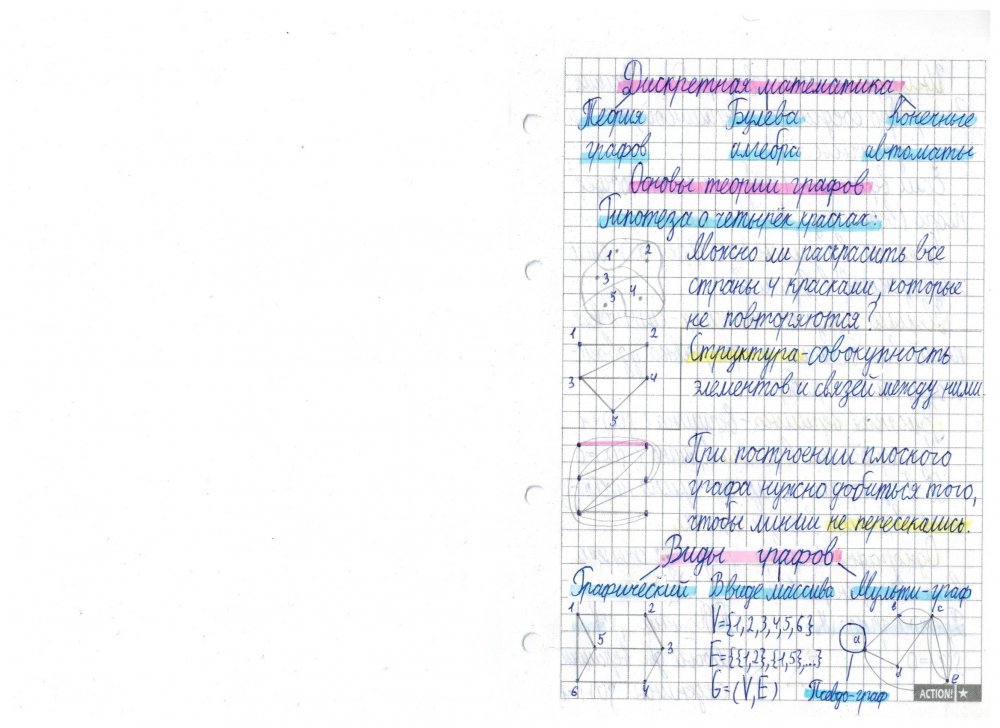 Дискретная математика
Теория Булева Конечные
графов алгебра автоматы
Основы теории графов
Гипотеза о четырёх красках:
1 2
3
5 4
Можно ли раскрасить все
страны 4 красками, которые
не повторяются?
1 2
3 4
5
Структура-совокупность
элементов и связей между ними.
При построении плоского
графа нужно добиться того,
чтобы линии не пересекались.
Виды графов
Графический В виде массива Мульти-граф
1 2
5 3
6 4
V={1,2,3,4,5,6}
E={{1,2},{1,5},...}
G=(V,E)
в с
а
d
е
Псевдо-граф
ACTION! ★